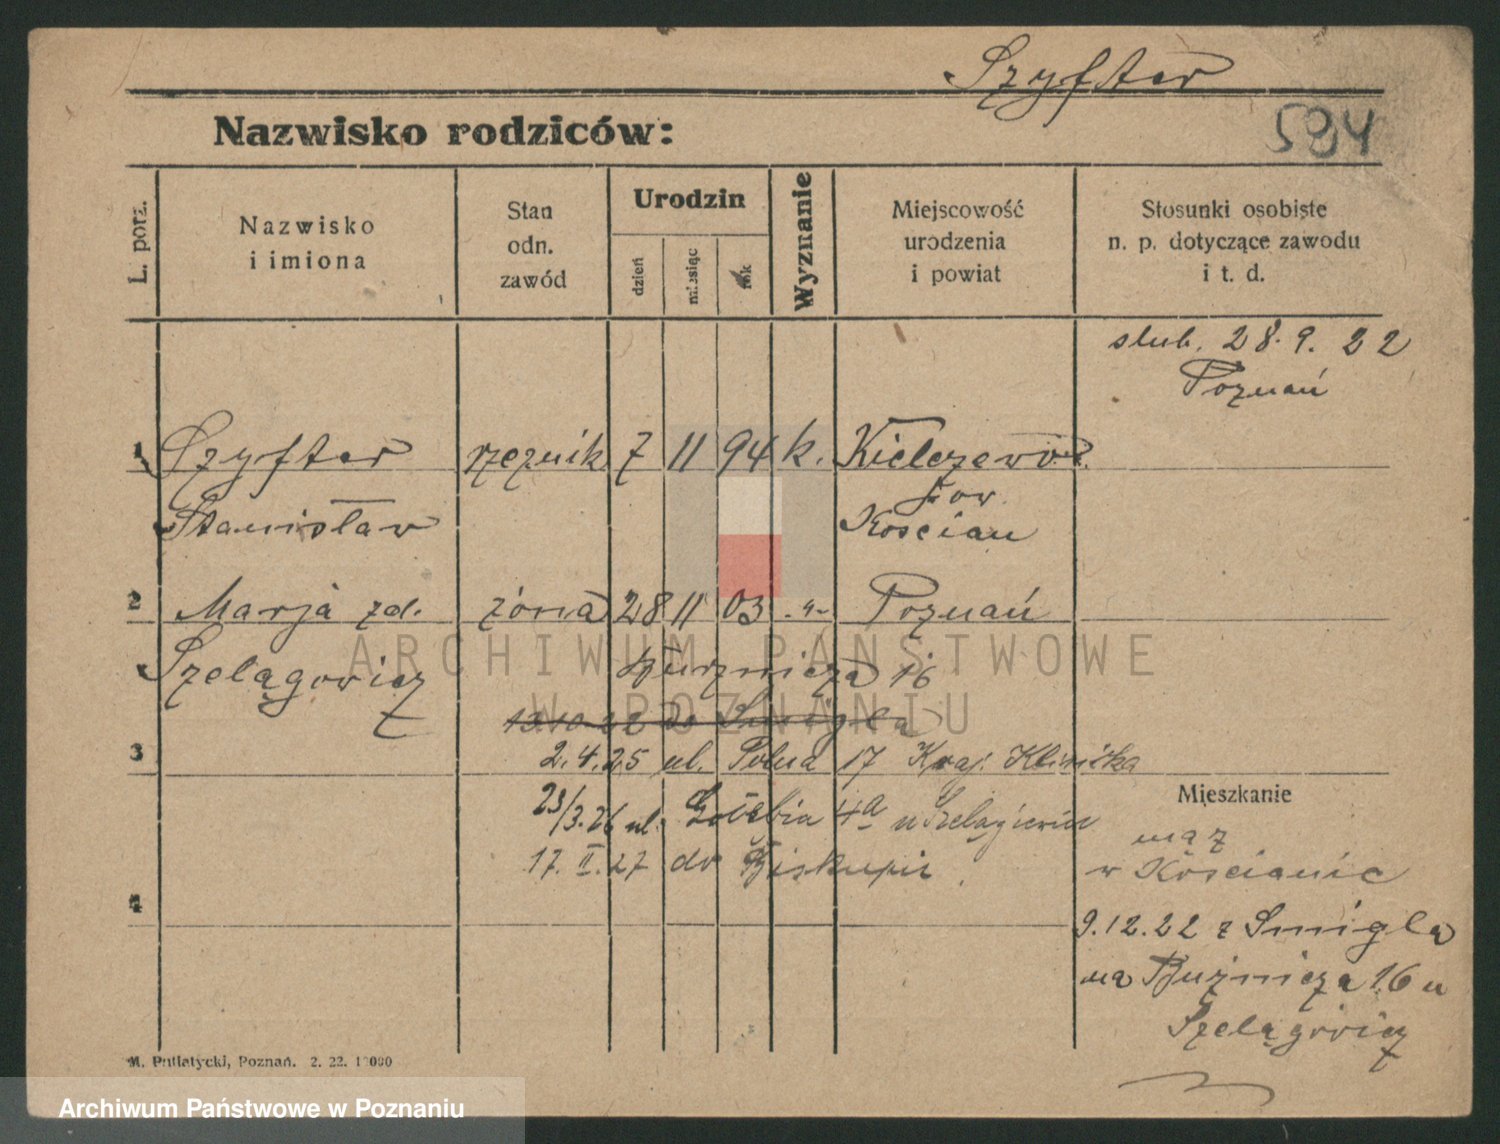 Szyfter
594
Nazwisko rodziców:
L. porz.
Nazwisko
i imiona
Stan
odn.
zawód
Urodzin
dzień
miesiąc
rok
Wyznanie
Miejscowość
urodzenia
i powiat
Stosunki osobiste
n. p. dotyczące zawodu
i t. d.
slub. 28.9.22
Poznań
1 Szyfter rzeznik 7 11 94 k. Kielczewo
pow.
Stanisław Kościan
2 Marja zd. żona 28 11 03 -"- Poznań
Szelągowicz
Buźnicza 16
10.22 do Smigla
3 2.4.25 ul. Polna 17 Kraj. Klinička
23/3.26 ul. Gołębia 4a u Szelągiewicz
Mieszkanie
mąż
17.II.27 do Biskupic
w Kościanie
4
9.12.22 z Smigla
na Buźnicza 16 u
Szelągowicz
M. Putiatycki, Poznań. 2. 22. 10000
ARCHIWUM PAŃSTWOWE
W POZNANIU
Archiwum Państwowe w Poznaniu